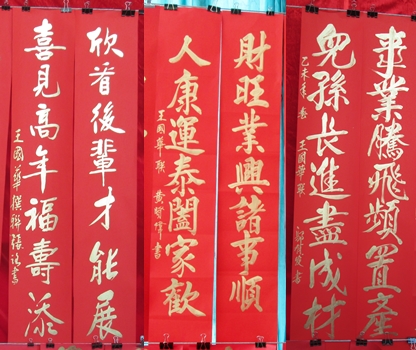 事業騰飛頻置產
兒孫長進盡成材
乙未年春 王國華聯
書
財旺業興諸事順
人康運泰闔家歡
王國華聯 黃 書
欣看後輩才能展
喜見高年福壽添
王國華撰聯 張 書